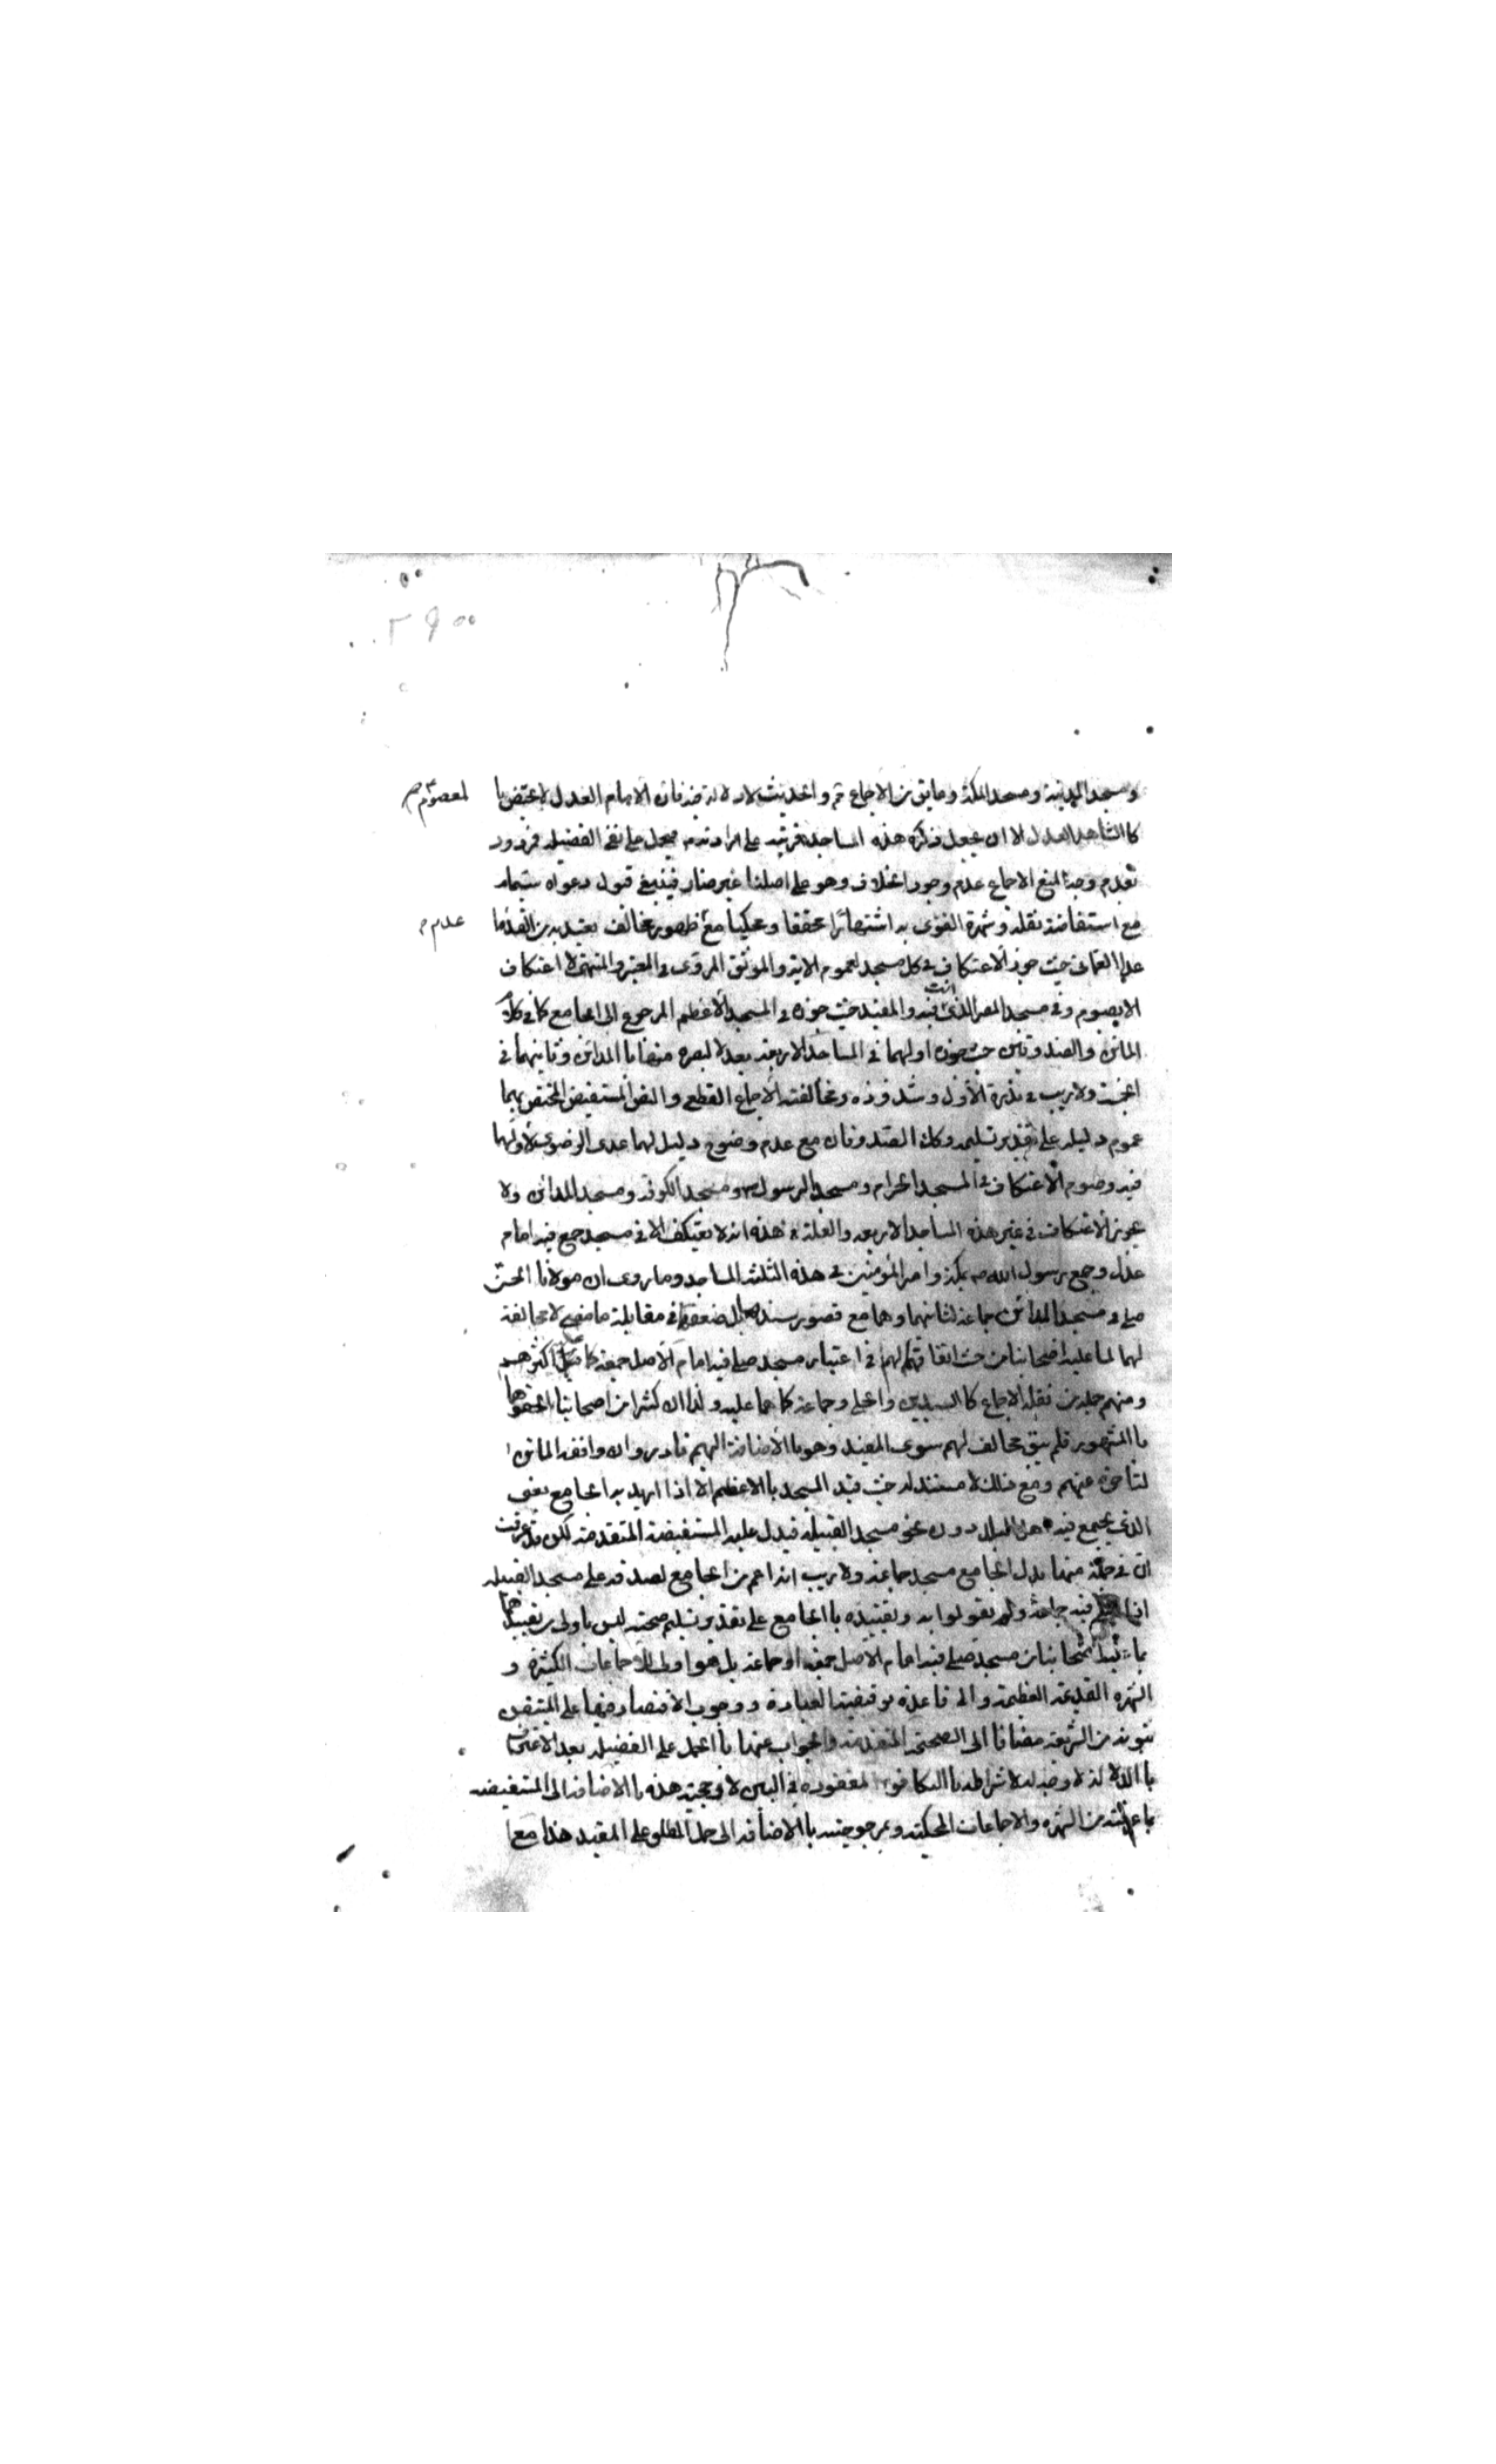 ومسجد المدينة ومسجد المكة وما يق من الاجماع ثم والحديث لا دلالة فيه فان الامام العدل لا يختص با لمعصوم
كالشاهد العدل الا ان يجعل ذكره هذه المساجد قرينة على ارادته
تقدم وجه المنع الاجماع عدم وجود الخلاف وهو على اصلنا غير ضار فينبغي قبول دعواه سيما
مع استفاضة نقله وشهرة الفتوى به اشتهارًا محققا ومحكيا مع ظهور مخالف يعتد به من القدما
عدم
عدا العماني حيث جوز الاعتكاف في كل مسجد لعموم الاية والموثق المروي في المعتبر والمنتهى لا اعتكاف
الا بصوم وفي مسجد المصر الذي انت فيه والمفيد حيث جوزه في المسجد الاعظم المرجوع الى الجامع كما في كلام
الماتن والصدوقين حيث جوزه اولهما في المساجد الاربعة بعد لا البصرة مضافا المداين وثانيهما في
الخمسة ولا ريب في ندرة الاول وشذوذه ومخالفته الاجماع القطعي والنص المستفيض المختص بهما
عموم دليله على تقدير تسليمه وكك الصدوقان مع عدم وضوح دليل لهما عدى الرضوي لاولهما
فيه وصوم الاعتكاف في المسجد الحرام ومسجد الرسول ومسجد الكوفة ومسجد المداين ولا
يجوز الاعتكاف في غير هذه المساجد الاربعة والعلة في هذه انه لا يعتكف الا في مسجد جمع فيه امام
عدل وجمع رسول الله ص بمكة وامير المؤمنين في هذه الثلثة المساجد وما روى ان مولانا الحسن
صلى في مسجد المداين جماعة لثانيهما وهما مع قصور سندهما بل ضعفهما في مقابلة ما مضى لا مخالفة
لهما لما عليه اصحابنا من حيث اتفاقهم لهم في اعتبار مسجد صلى فيه امام الاصل جمعة كما عن اكثرهم
ومنهم جملة من نقلة الاجماع كالسيدين والحلي وجماعة كما هما عليه ولذا ان كثيرا من اصحابنا الحقوهما
با المشهور فلم يبق مخالف لهم سوى المفيد وهو با الاضافة اليهم نادر وان وافقه الماتن
لتاخره عنهم ومع ذلك لا مستند له حيث قيد المسجد با الاعظم الا اذا اريد به الجامع يعني
الذي يجمع فيه اهل البلد دون نحو مسجد القبيلة فيدل عليه المستفيضة المتقدمة لكن قد عرفت
ان في جملة منها بدل الجامع مسجد جماعة ولا ريب انه اعم من الجامع لصدقه على مسجد القبيلة
اذا صلى فيه جماعة ولم يقولوا به وتقييده با الجامع على تقدير تسليم صحته ليس باولى من تقييدهما
بما قيده اصحابنا من مسجد صلى فيه امام الاصل جمعة او جماعة بل هو اولى للاجماعات الكثيرة و
الشهرة القديمة العظيمة والى قاعدة توقيفية العبادة ووجوب الاقتصار فيها على المتيقن
ثبوته من الشريعة مضافا الى الصحتى المتقدمة والجواب عنها با الحمل على الفضيلة بعد الاعتراف
با الدلالة لا وجه له لاشراطه با التكافؤ المفقوده في البين لارجحية هذه با الاضافة الى المستفيضة
بما عرفته من الشهرة والاجماعات المحكية ومرجوحيته با الاضافة الى حمل المطلق على المقيد هذا مع